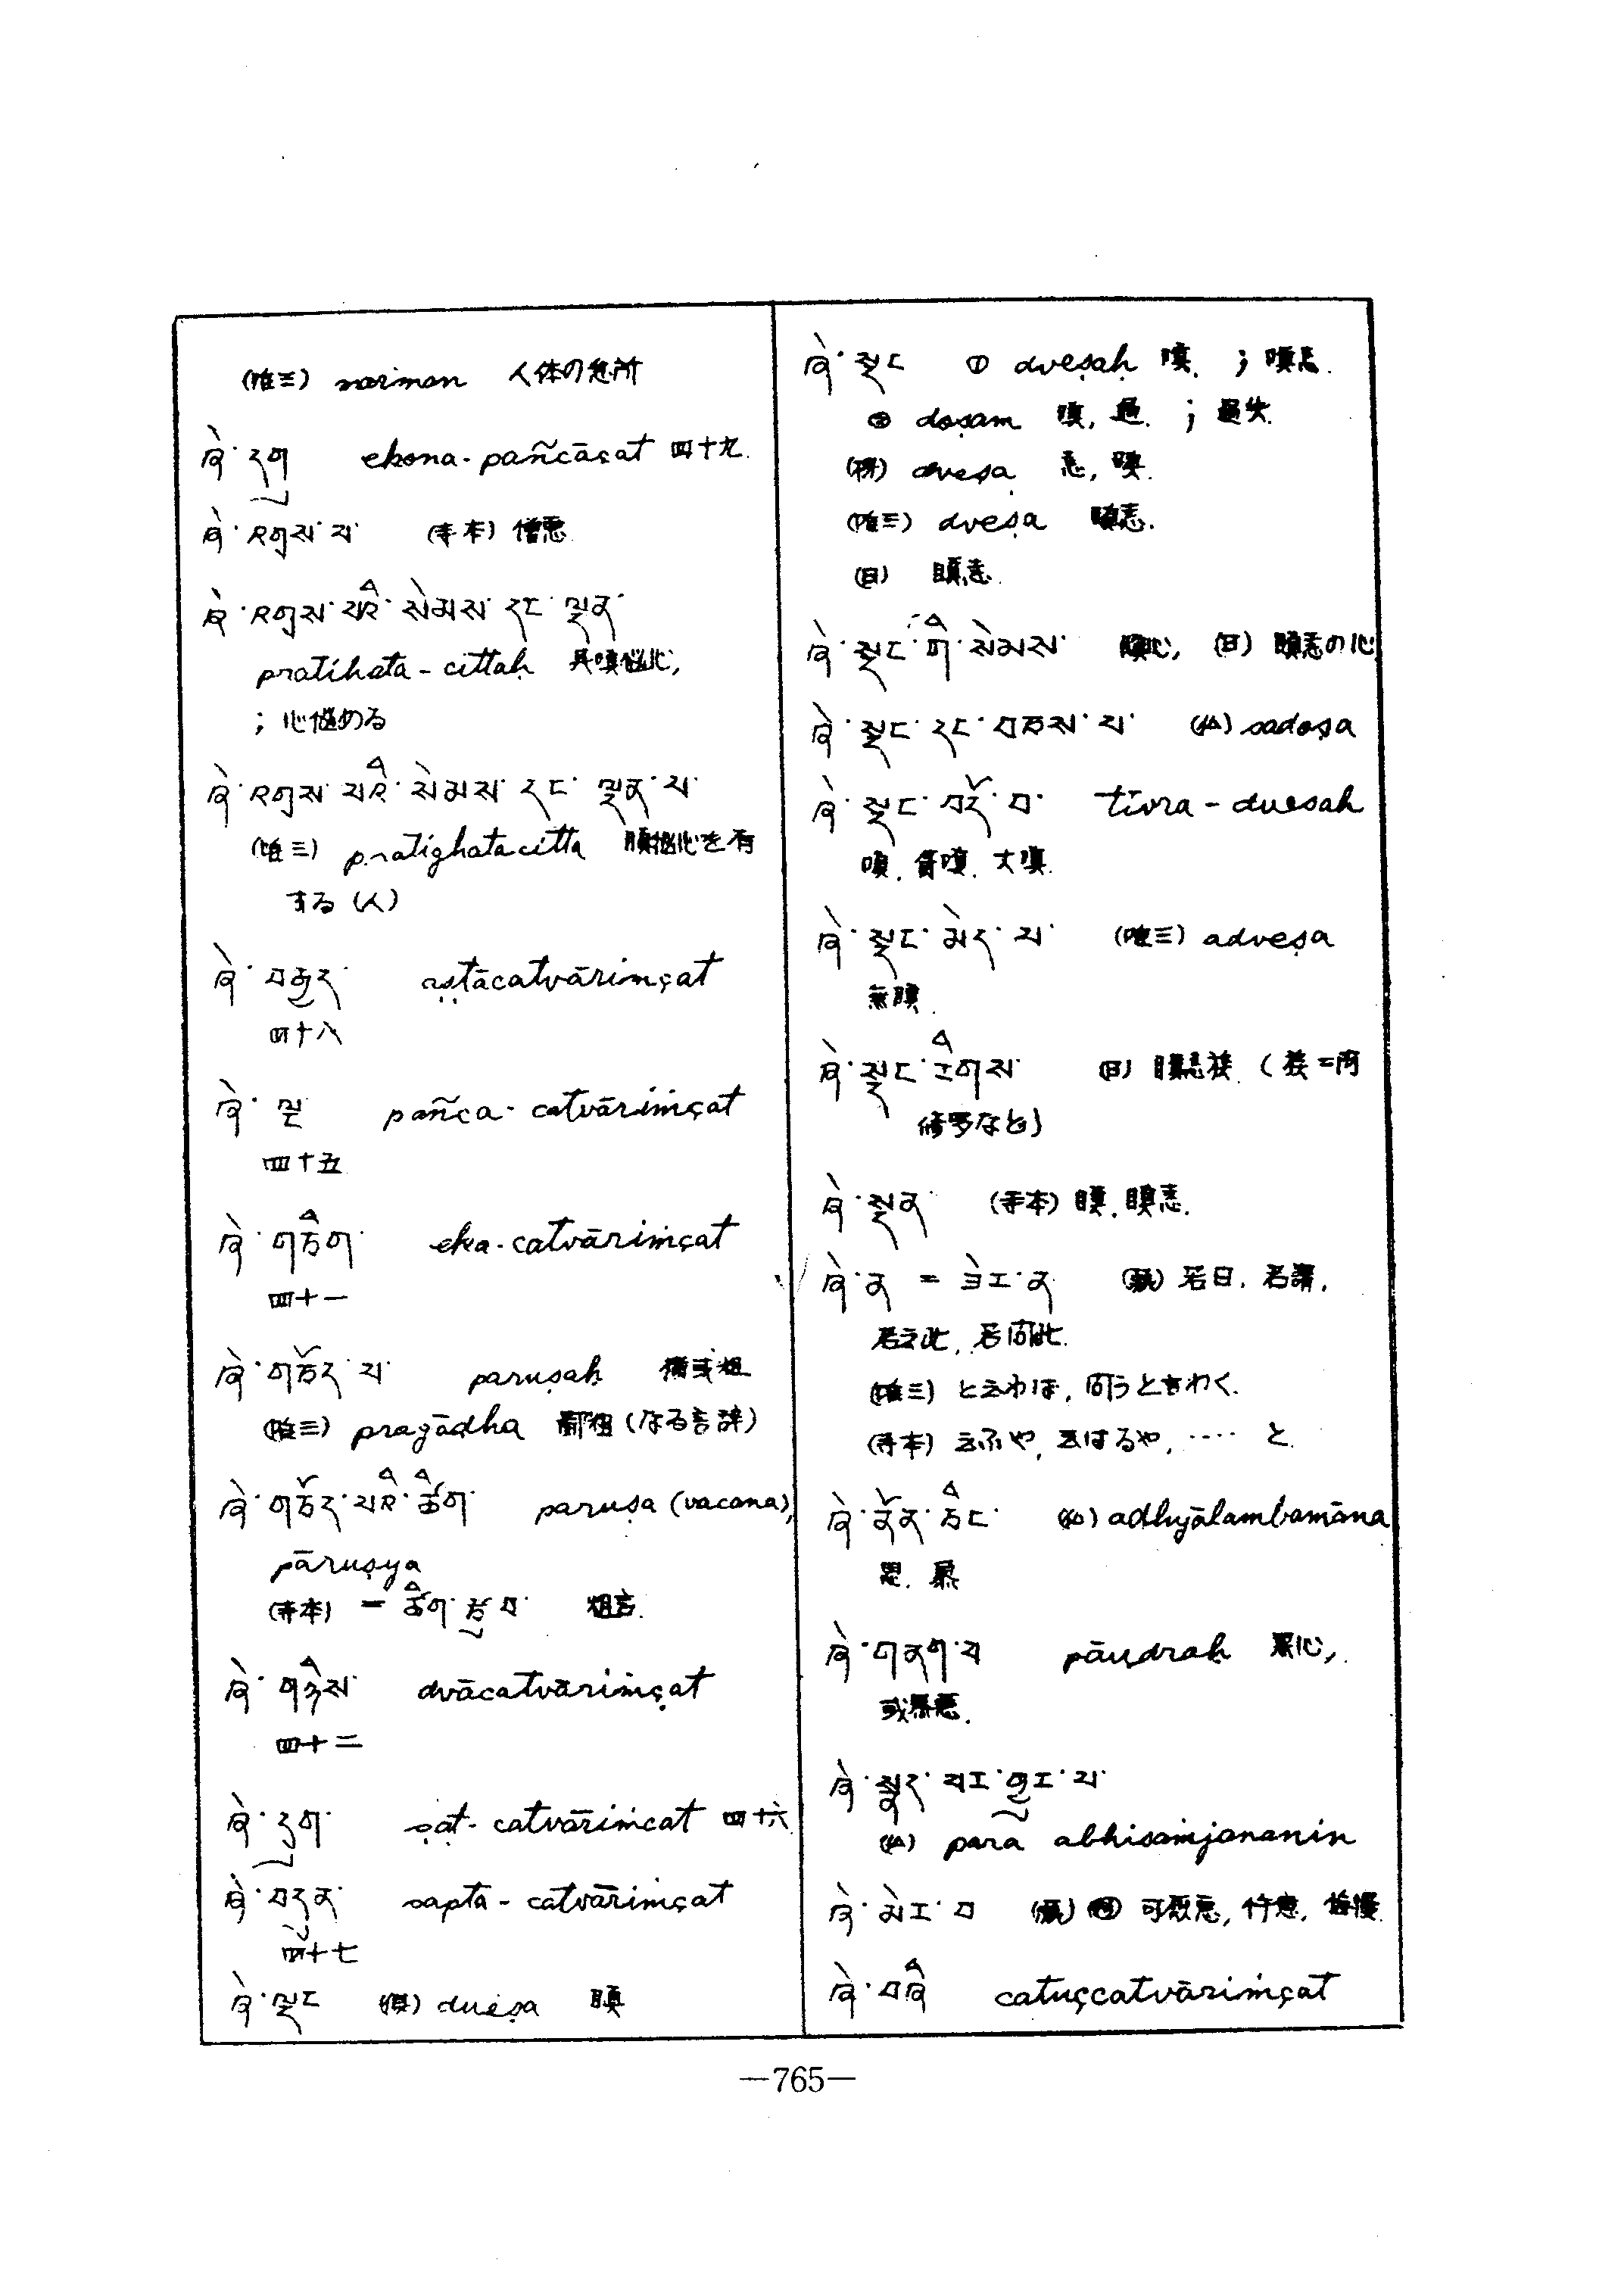 (唯三) mariman 人体の急所
ཞེ་དགུ ekona-pañcāçat 四十九.
ཞེ་འགྲས་པ་ (寺本) 僧悪
ཞེ་འགྲས་པའི་སེམས་དང་ལྡན་
pratihata-cittaḥ 具嗔惱心,
; 心惱める
ཞེ་འགྲས་པའི་སེམས་དང་ལྡན་པ་
(唯三) pratighatacitta 瞋惱心を有
する (人)
ཞེ་བརྒྱད་ aṣṭācatvārimçat
四十八
ཞེ་ལྔ pañca-catvāriṁçat
四十五
ཞེ་གཅིག་ eka-catvāriṁçat
四十一
ཞེ་གཅོད་པ་ paruṣaḥ 獷或粗
(唯三) pragāḍha 麁獷 (なる言辞)
ཞེ་གཅོད་པའི་ཚིག་ paruṣa (vacana),
pāruṣya
(寺本) = ཚིག་རྩུབ་ 粗言.
ཞེ་གཉིས་ dvācatvāriṁçat
四十二
ཞེ་དྲུག་ ṣaṭ-catvāriṁcat 四十六
ཞེ་བདུན་ sapta-catvāriṁçat
四十七
ཞེ་ལྡང (倶) dveṣa 瞋
ཞེ་སྡང ① dveṣaḥ 嗔. ; 嗔恚.
② doṣam 嗔, 過. ; 過失.
dveṣa 恚, 瞋.
(唯三) dveṣa 瞋恚.
(日) 瞋恚.
ཞེ་སྡང་གི་སེམས་ 瞋心, (日) 瞋恚の心
ཞེ་སྡང་དང་བཅས་པ་ sadoṣa
ཞེ་སྡང་བདོ་བ་ tīvra-dvesah
嗔. 奮嗔. 大嗔.
ཞེ་སྡང་མེད་པ་ (唯三) adveṣa
無瞋.
ཞེ་སྡང་རིགས་ (日) 瞋恚族. (族=阿
修羅など)
ཞེ་སྡན་ (寺本) 瞋. 瞋恚.
ཞེ་ན = ཟེར་ན 若曰. 若謂.
若云此, 若問此.
(唯三) と云わば, 問うと言わく.
(寺本) 云ふや, 云はるや, ‥‥ と.
ཞེ་ནོན་ཅིང་ adhyālambamāna
思. 慕
ཞེ་གནག་པ pāṇḍraḥ 黒心,
或暴悪.
ཞེ་སྡུད་པར་བྱེར་པ་
para abhisaṁjananin
ཞེ་མེར་བ 可厭悪,
ཞེ་བཞི catuçcatvāriṁçat
—765—